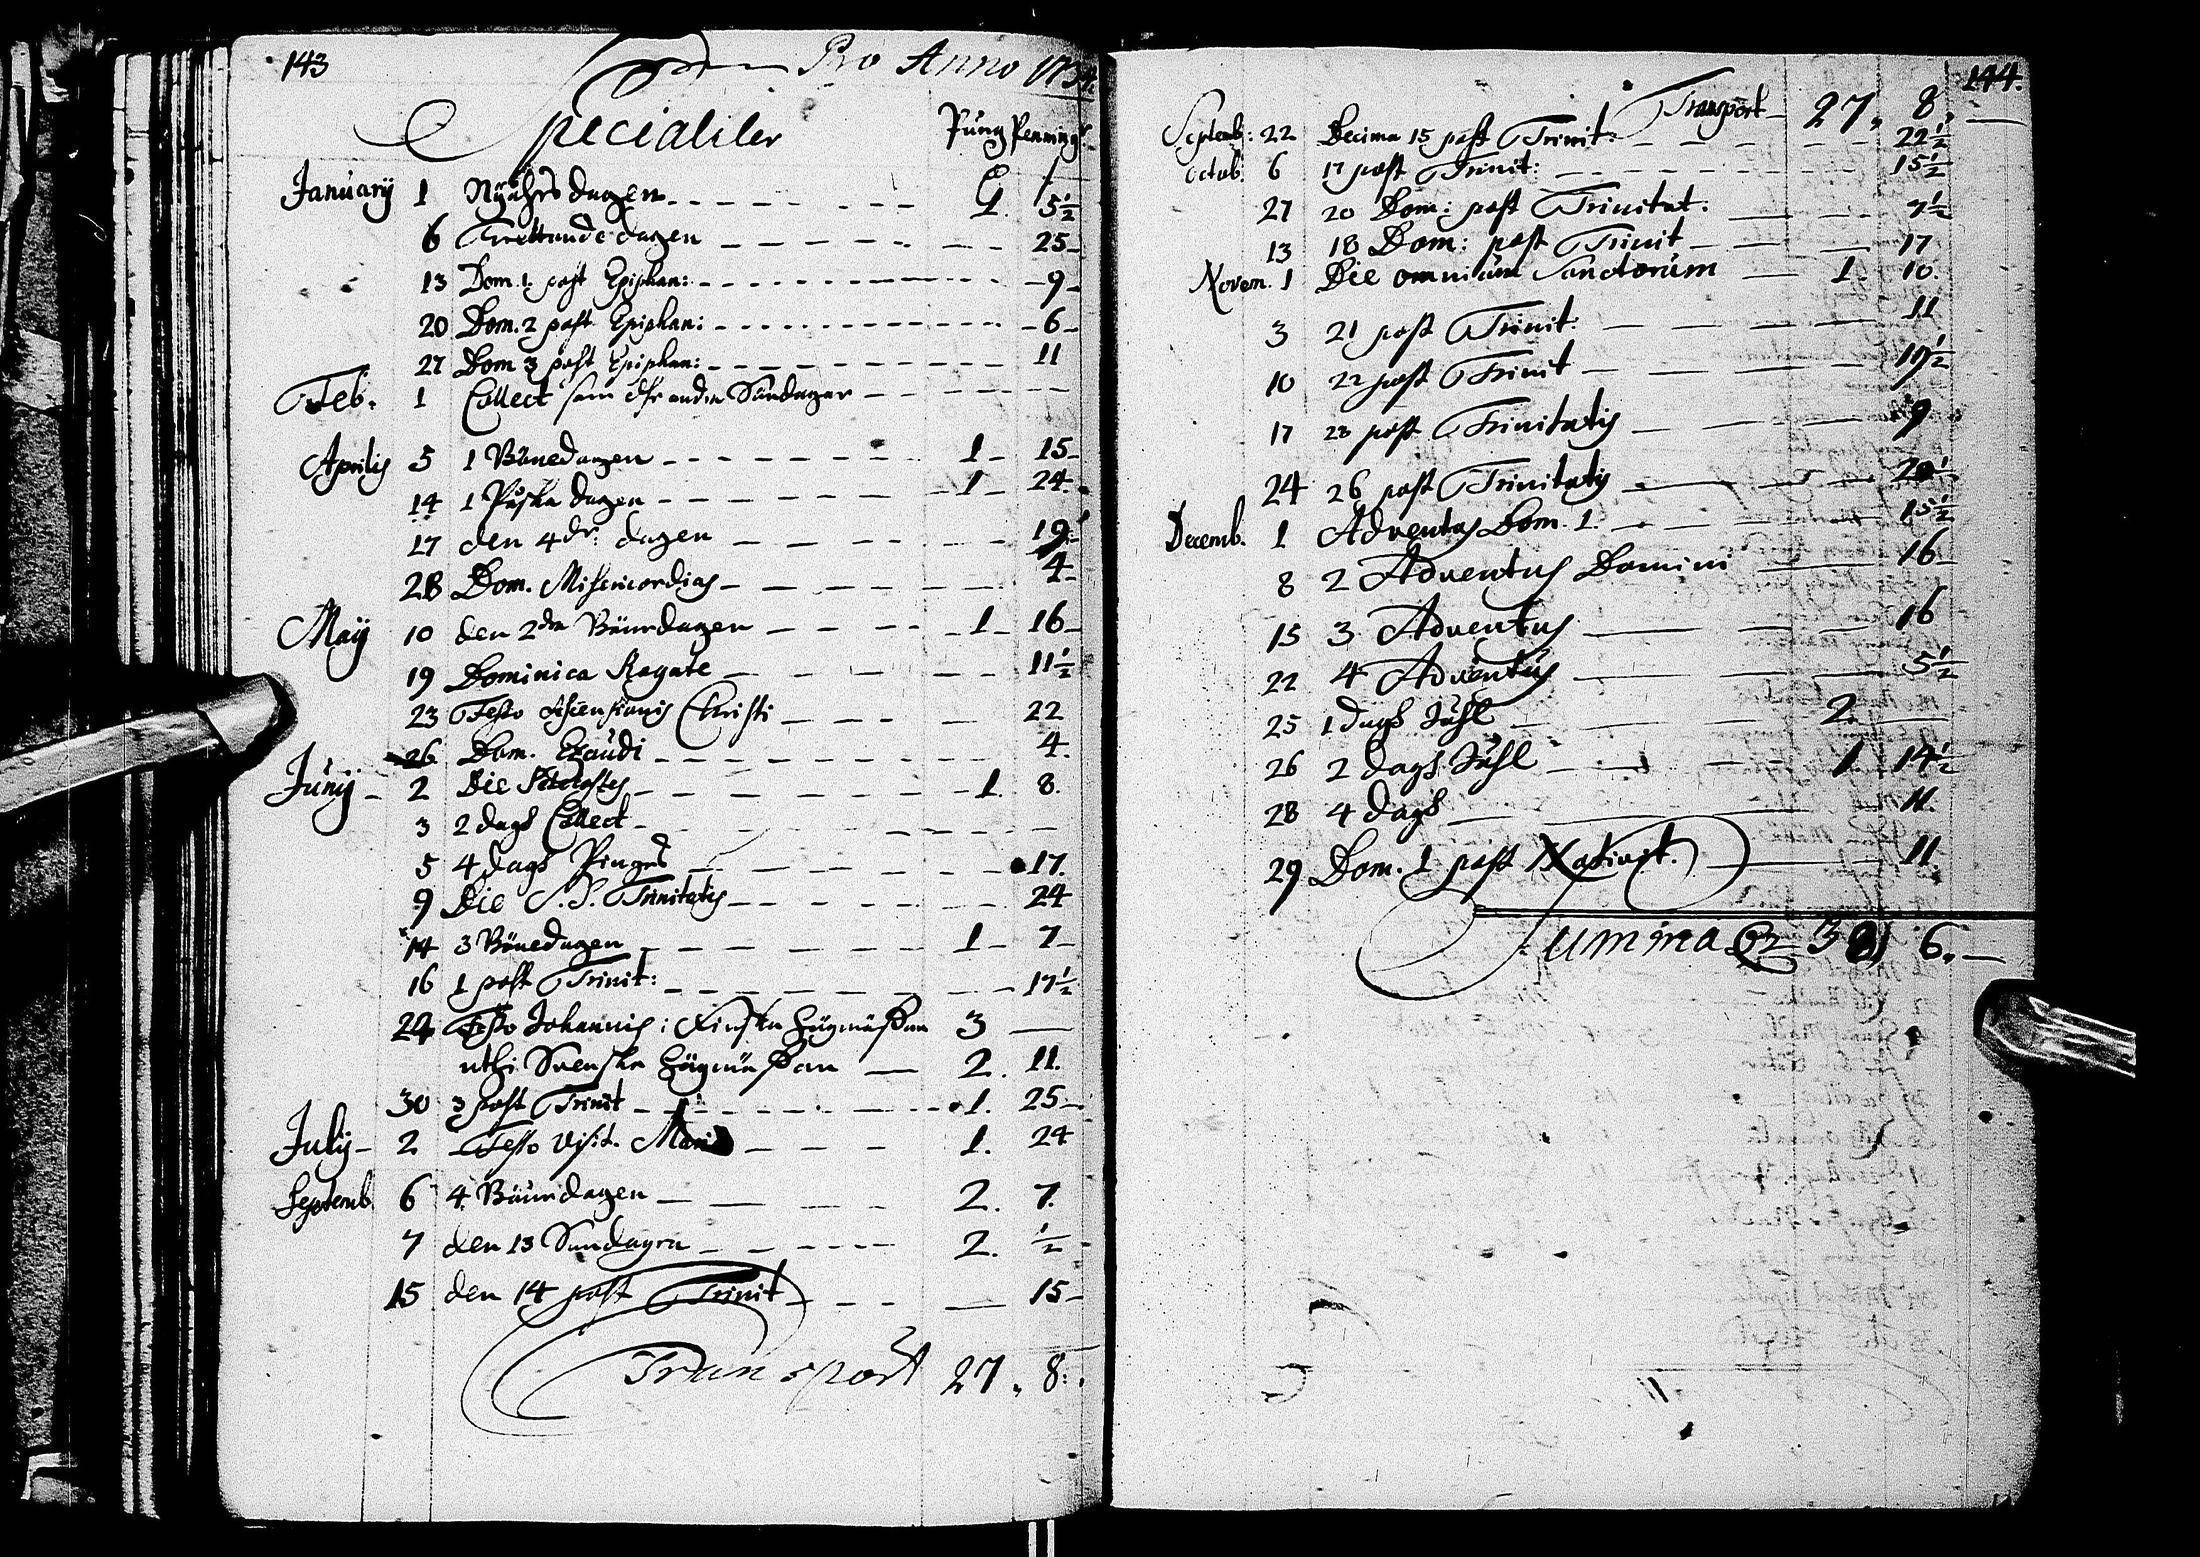 143 Pro Anno 1734.
Specialiter Pung Penning
Januarij 1 Nyåhrsdagen 1. 5½
6 Trettonde dagen 25
13 Dom. 1. post Epiphan: 9
20 Dom. 2 post Epiphan: 6
27 Dom 3 post Epiphan: 11
Feb. 1 Collect Söndagar
Aprilis 5 1 Bönedagen 1 15
14 1 Påska dagen 1 24
17 den 4dr: dagen 19
28 Dom. Misericordias 4
Maij 10 den 2dra Bönedagen 1 16
19 Dominica Rogate 11½
23 Festo Ascensionis Christi 22
26 Dom. Exaudi 4
Junij 2 Die Pentecostes 1. 8.
3 2 dags Collect
5 4 dags Pingsd 17.
9 Die S. S. Trinitatis 24
14 3 Bönedagen 1 7
16 1 post Trinit: 17½
24 Festo Johannis i Finska Högmässan 3
uthi Svenska Högmässan 2. 11.
30 3 post Trinit 1. 25
July 2 Festo Visit. Mariæ 1. 24
Septemb. 6 4 Bönedagen 2. 7.
7 den 13 Sundagen 2. ½
15 den 14 post Trinit 15
Transport 27, 8.
144.
Transport 27, 8,
Septemb: 22 Decima 15 post Trinit: 22½
Octob. 6 17 post Trinit: 15½
27 20 Dom: post Trinitat: 7½
13 18 Dom: post Trinit 17
Novem. 1 Die omnium Sanctorum 1 10.
3 21 post Trinit: 11
10 22 post Trinit 17½
17 23 post Trinitatis 9
24 26 post Trinitatis 20½
Decemb. 1 Adventus Dom. 1. 15½
8 2 Adventus Domini 16
15 3 Adventus 16
22 4 Adventus 5½
25 1 dags Juhl 2.
26 2 dags Juhl 1 14½
28 4 dags 11.
29 Dom. 1 post Nativit. 11
Summa 38, 6,